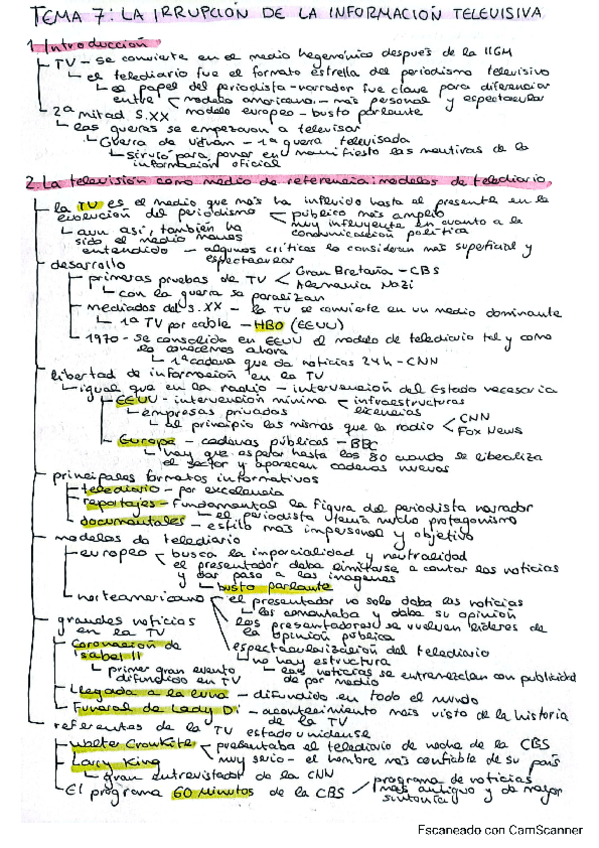 TEMA 7: LA IRRUPCIÓN DE LA INFORMACIÓN TELEVISIVA
1. Introducción
TV - se convierte en el medio hegemónico después de la IIGM
el telediario fue el formato estrella del periodismo televisivo
el papel del periodista-narrador fue clave para diferenciar
entre modelo americano - más personal y espectacular
modelo europeo - busto parlante
2ª mitad S.XX
las guerras se empezaron a televisar
Guerra de Vietnam - 1ª guerra televisada
sirvió para poner en manifiesto las mentiras de la
información oficial
2. La televisión como medio de referencia: modelos de telediario
la TV es el medio que más ha influido hasta el presente en la
evolución del periodismo
público más amplio
muy influyente en cuanto a la
comunicación política
aun así, también ha
sido el medio menos
entendido - algunos críticos lo consideran más superficial y
espectacular
desarrollo
primeras pruebas de TV
Gran Bretaña - CBS
Alemania Nazi
con la guerra se paralizan
mediados del S.XX - la TV se convierte en un medio dominante
1ª TV por cable - HBO (EEUU)
1970 - se consolida en EEUU el modelo de telediario tal y como
lo conocemos ahora
1ª cadena que da noticias 24h - CNN
libertad de información en la TV
igual que en la radio - intervención del Estado necesaria
EEUU - intervención mínima
infraestructuras
licencias
empresas privados
al principio las mismas que la radio
CNN
Fox News
Europa - cadenas públicas - BBC
hay que esperar hasta los 80 cuando se liberaliza
el sector y aparecen cadenas nuevas
principales formatos informativos
telediario - por excelencia
reportajes - fundamental la figura del periodista narrador
el periodista tenía mucho protagonismo
documentales - estilo más impersonal y objetivo
modelos de telediario
europeo - busca la imparcialidad y neutralidad
el presentador debe limitarse a contar las noticias
y dar paso a las imágenes
busto parlante
norteamericano
el presentador no solo daba las noticias
las comentaba y daba su opinión
los presentadores se vuelven líderes de
la opinión pública
espectacularización del telediario
no hay estructura
las noticias se entremezclan con publicidad
de por medio
grandes noticias
en la TV
Coronación de
Isabel II
primer gran evento
difundido en TV
Llegada a la luna - difundido en todo el mundo
Funeral de Lady Di - acontecimiento más visto de la historia
de la TV
referentes de la TV estadounidense
Walte Cronkite
presentaba el telediario de noche de la CBS
muy serio - el hombre más confiable de su país
Larry King
gran entrevistador de la CNN
El programa 60 Minutos de la CBS
programa de noticias
más antiguo y de mayor
sintonía
Escaneado con CamScanner